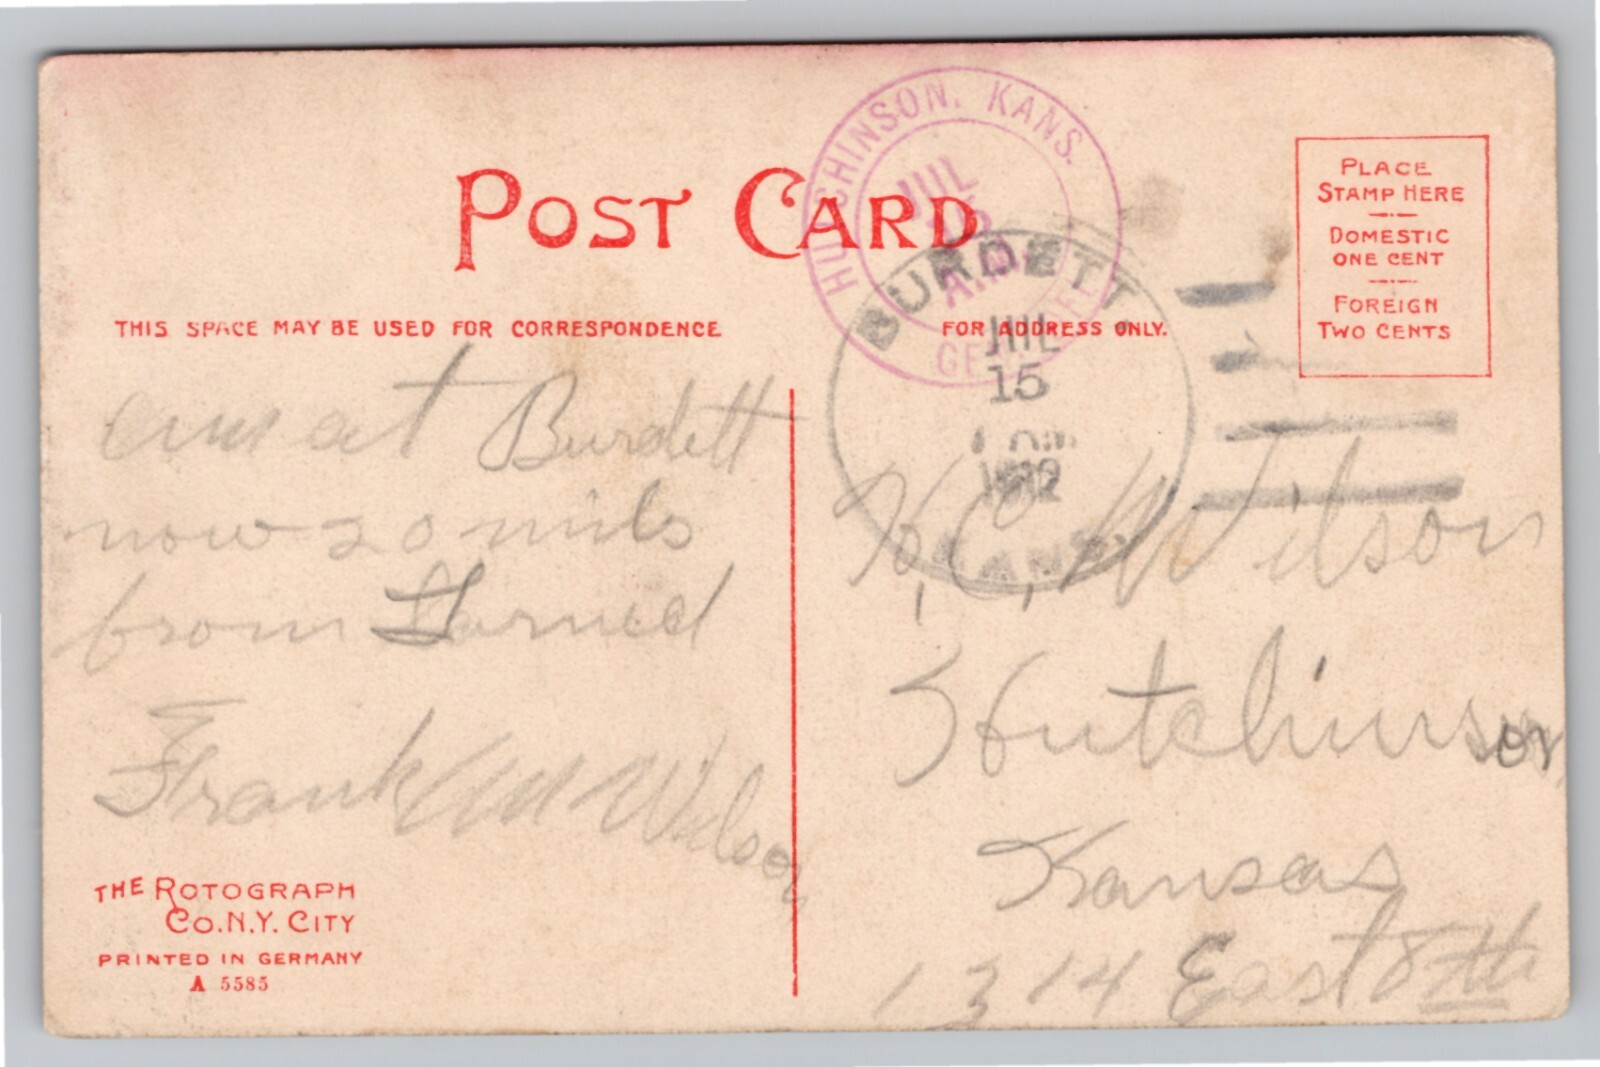 POST CARD
THIS SPACE MAY BE USED FOR CORRESPONDENCE
FOR ADDRESS ONLY.
PLACE
STAMP HERE
DOMESTIC
ONE CENT
FOREIGN
TWO CENTS
HUTCHINSON, KANS.
JUL
A.M.
BURDETT,
JUL
15
KANS.
am at Burdett
now 20 mils
from Larned
Frank M Wilson
H, C, Wilson
Hutchinson
Kansas
1314 East 8th
THE ROTOGRAPH
CO. N.Y. CITY
PRINTED IN GERMANY
A 5585